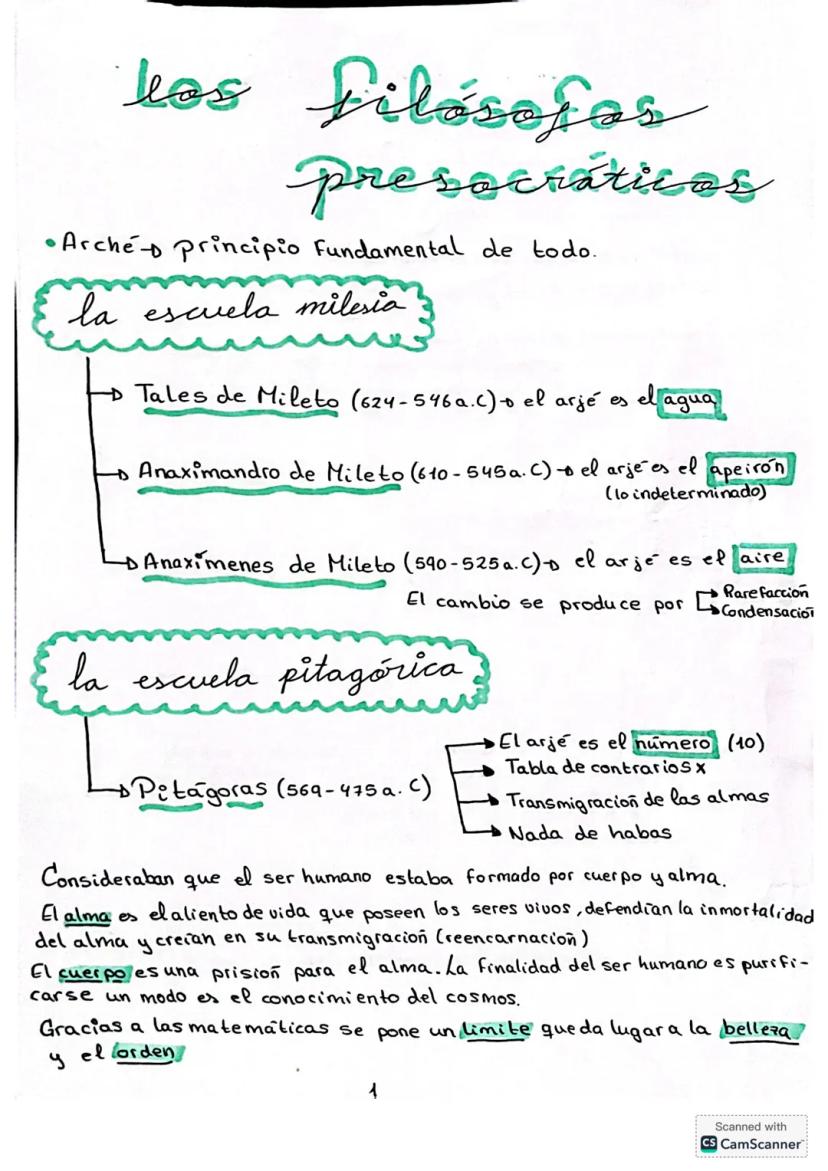 los filósofos
presocráticos
• Arché → principio fundamental de todo.
la escuela milesia
→ Tales de Mileto (624-546 a.C) → el arjé es el agua
→ Anaximandro de Mileto (610-545 a.C) → el arjé es el apeirón
(lo indeterminado)
→ Anaxímenes de Mileto (590-525 a.C) → el arjé es el aire
El cambio se produce por → Rarefacción
→ Condensación
la escuela pitagórica
→ El arjé es el número (10)
→ Tabla de contrarios x
→ Pitágoras (569-475 a.C)
→ Transmigración de las almas
→ Nada de habas
Consideraban que el ser humano estaba formado por cuerpo y alma.
El alma es el aliento de vida que poseen los seres vivos, defendían la inmortalidad
del alma y creían en su transmigración (reencarnación)
El cuerpo es una prisión para el alma. La finalidad del ser humano es purifi-
carse un modo es el conocimiento del cosmos.
Gracias a las matemáticas se pone un límite que da lugar a la belleza
y el orden
1
Scanned with
CS CamScanner